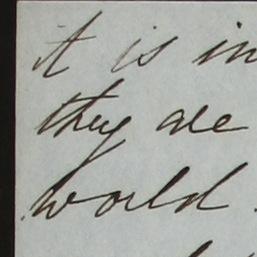 it is in
they are
world.